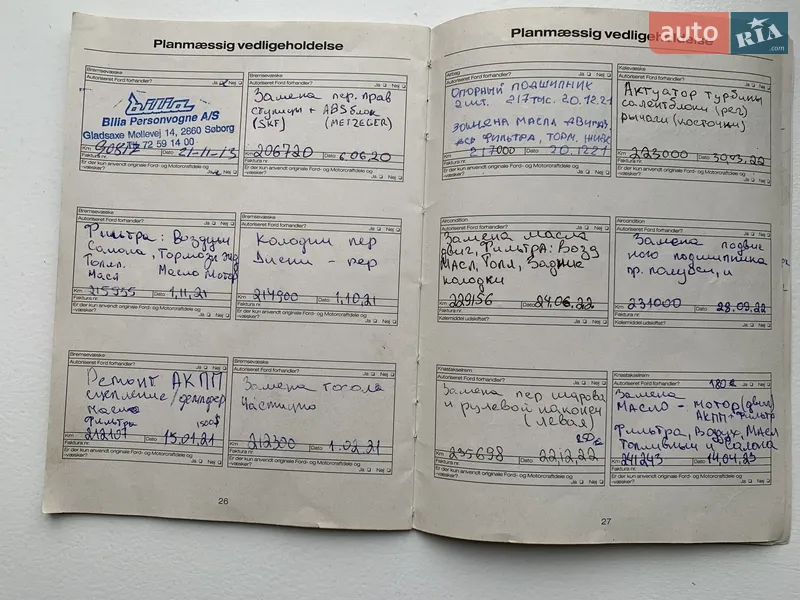 auto RIA .com
Planmæssig vedligeholdelse
Bremsevæske
Autoriseret Ford forhandler?
Ja Nej
Bilia
Bilia Personvogne A/S
Gladsaxe Møllevej 14, 2860 Søborg
72 59 14 00
Km Dato 21-11-13
Faktura nr.
Er der kun anvendt originale Ford- og Motorcraftdele og -væsker?
Ja Nej
Bremsevæske
Autoriseret Ford forhandler?
Ja Nej
Замена пер. прав
ступицы + ABS блок
(SKF) (METZGER)
Km 206720 Dato 6.06.20
Faktura nr.
Er der kun anvendt originale Ford- og Motorcraftdele og -væsker?
Ja Nej
Bremsevæske
Autoriseret Ford forhandler?
Ja Nej
Фильтра: Воздушн
Салона, Тормоза зад
Топл.
Масл Масло Мотор
Km 215555 Dato 1,11,21
Faktura nr.
Er der kun anvendt originale Ford- og Motorcraftdele og -væsker?
Ja Nej
Bremsevæske
Autoriseret Ford forhandler?
Ja Nej
Колодки пер
Диски - пер
Km 214900 Dato 1,10,21
Faktura nr.
Er der kun anvendt originale Ford- og Motorcraftdele og -væsker?
Ja Nej
Bremsevæske
Autoriseret Ford forhandler?
Ja Nej
Ремонт АКПП
сцепление/демпфер
Масло
Фильтра 1500$
Km 212107 Dato 15.01.21
Faktura nr.
Er der kun anvendt originale Ford- og Motorcraftdele og -væsker?
Ja Nej
Bremsevæske
Autoriseret Ford forhandler?
Ja Nej
Замена тосола
частично
Km 212300 Dato 1.02.21
Faktura nr.
Er der kun anvendt originale Ford- og Motorcraftdele og -væsker?
Ja Nej
26
Planmæssig vedligeholdelse
Airbag
Autoriseret Ford forhandler?
Ja Nej
ОПОРНИЙ ПОДШИПНИК
2 шт. 217 тыс. 20.12.21
ЗАМЕНА МАСЛА ДВИГАТ,
ВСЕ ФИЛЬТРА, ТОРМ.
Km 217000 Dato 20.12.21
Faktura nr.
Er der kun anvendt originale Ford- og Motorcraftdele og -væsker?
Ja Nej
Kølevæske
Autoriseret Ford forhandler?
Ja Nej
Актуатор турбины
салентблоки (рег)
рычали (косточки)
Km 223000 Dato 30.03.22
Faktura nr.
Er der kun anvendt originale Ford- og Motorcraftdele og -væsker?
Ja Nej
Aircondition
Autoriseret Ford forhandler?
Ja Nej
Замена масла
двиг, Фильтра: Возд
Масл, Топл, Задние
колодки
Km 229156 Dato 24.06.22
Faktura nr.
Er der kun anvendt originale Ford- og Motorcraftdele og -væsker?
Ja Nej
Kølemiddel udskiftet?
Aircondition
Autoriseret Ford forhandler?
Ja Nej
Замена подвес
ного подшипника
пр. полуоси, и
Km 231000 Dato 28.09.22
Faktura nr.
Er der kun anvendt originale Ford- og Motorcraftdele og -væsker?
Ja Nej
Kølemiddel udskiftet?
Knastakselrem
Autoriseret Ford forhandler?
Ja Nej
Замена пер шарова
и рулевой наконеч
(левая)
Km 235698 Dato 22,12,22
Faktura nr.
Er der kun anvendt originale Ford- og Motorcraftdele og -væsker?
Ja Nej
Knastakselrem
Autoriseret Ford forhandler?
Ja Nej
180€
Замена
МАСЛО - МОТОР (двиг)
АКПП + Фильтр
Фильтра, Воздух, Масл
Топливный и Салона
Km 241243 Dato 14.04.23
Faktura nr.
Er der kun anvendt originale Ford- og Motorcraftdele og -væsker?
Ja Nej
27